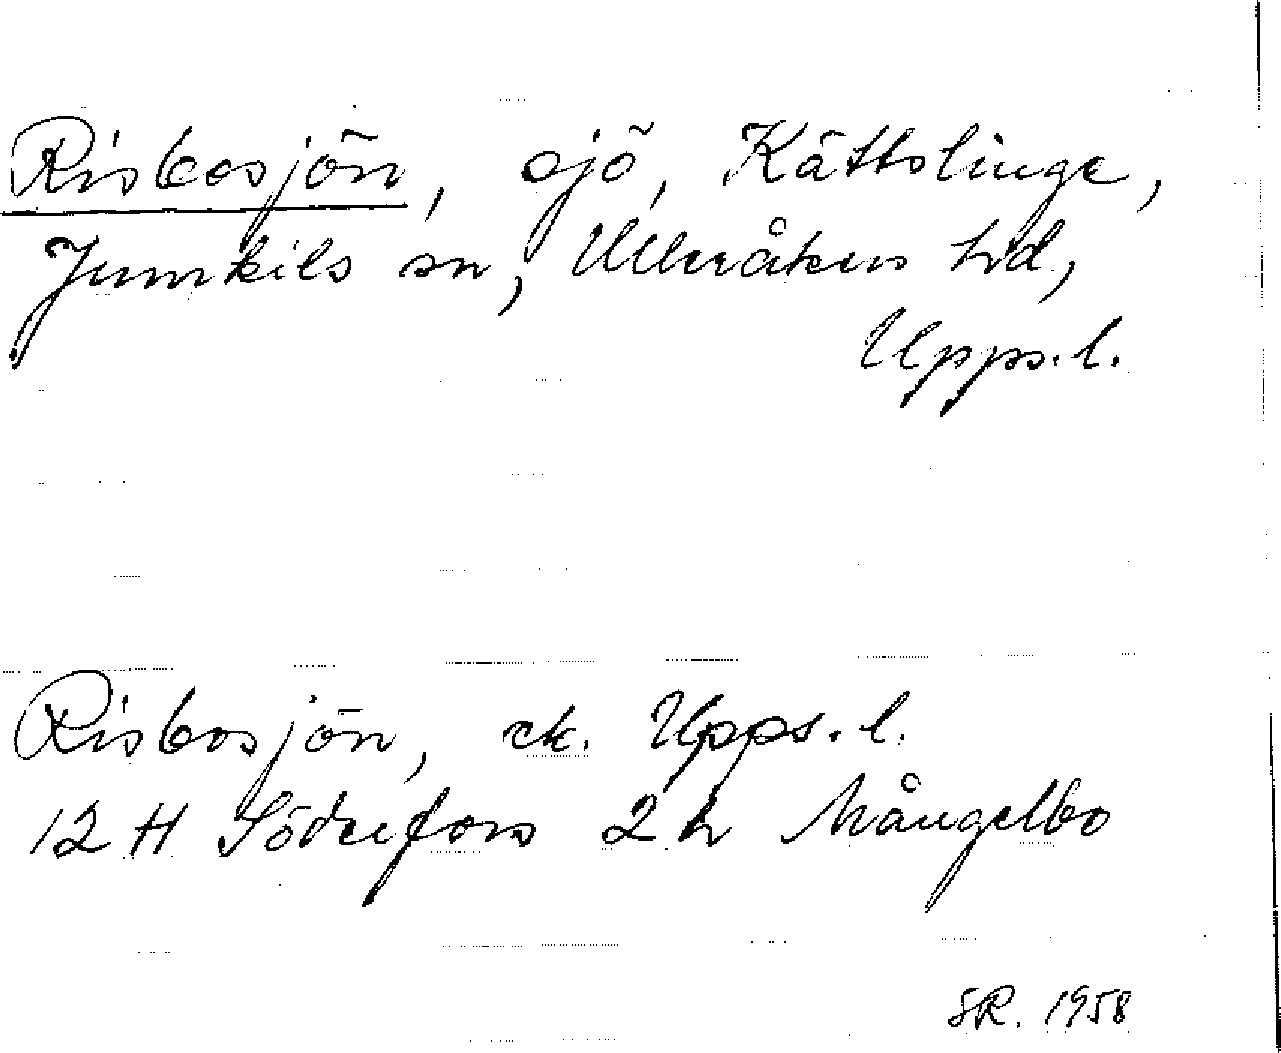 Risbosjön, sjö, Kättslinge,
Jumkils sn, Ulleråkers hd,
Upps. l.
Risbosjön, ek. Upps. l.
12 H Söderfors 2 h Mångelbo
SR. 1958